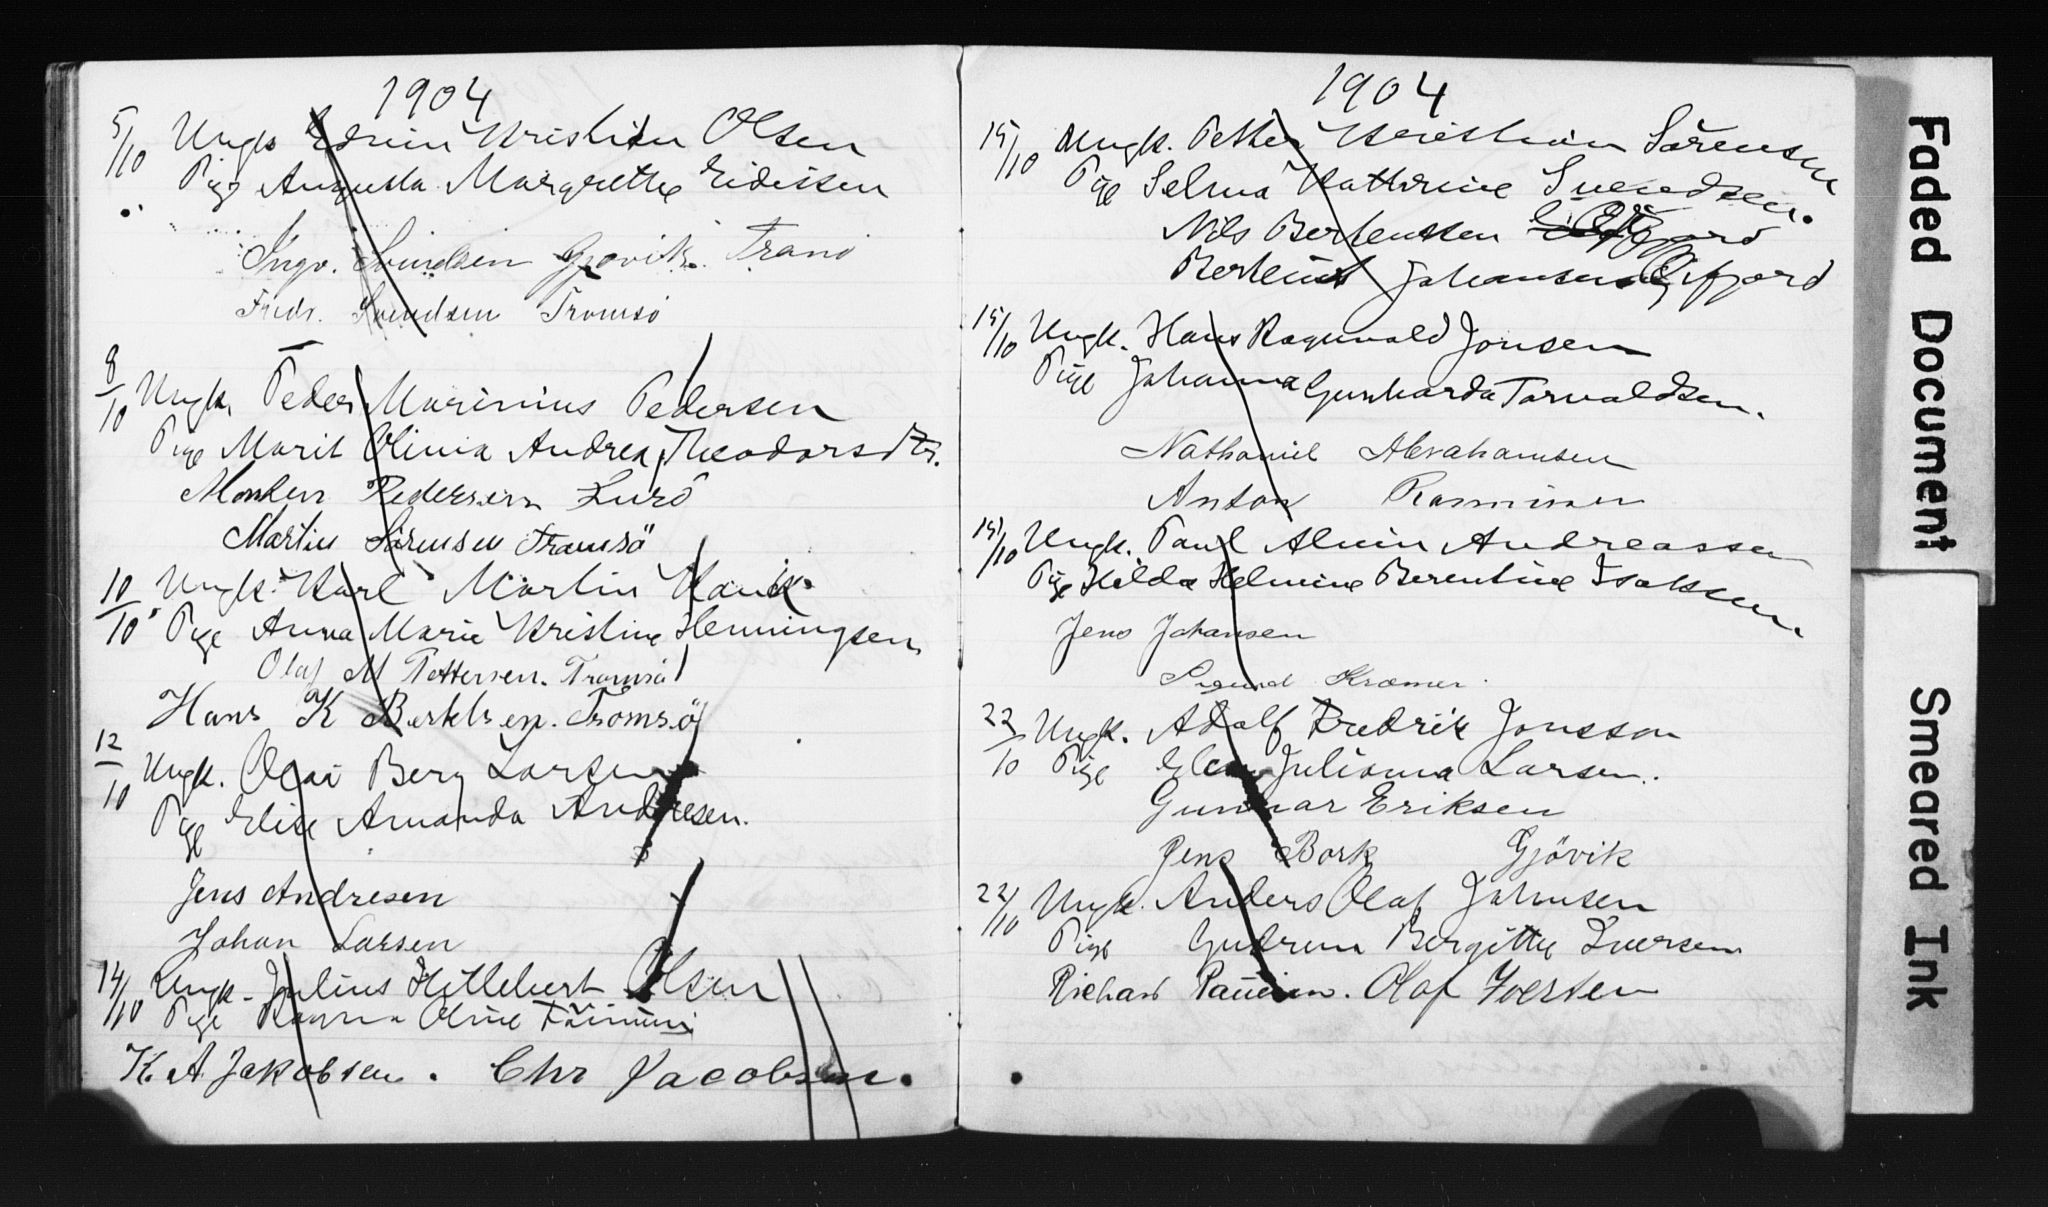 1904
5/10 Ungk. Edvin Kristian Olsen
Pige Augusta Margrethe Eidissen
Ingv. Svendsen Gjøvik. Tranö
Fredr. Svendsen Tromsö
8/10 Ungk. Peder Marinius Pedersen
Pige Marit Olivia Andrea Theodorsdtr.
Morten Pedersen Lurö
Martin Sörensen Tromsö
10/10 Ungk. Karl Martin Hauk.
Pige Anna Marie Kristine Henningsen
Olaf M Pettersen. Tromsö
Hans K Bertelsen. Tromsö
12/10 Ungk. Olai Berg Larsen
Pige Elise Amanda Andresen.
Jens Andresen
Johan Larsen
14/10 Ungk. Julius Hillebert Olsen
Pige Oline
K. A Jakobsen. Chr Jacobsen.
1904
15/10 Ungk. Petter Kristian Sörensen
Pige Selma Kathrine Svendsen.
Nils Berteussen Gifjord
Berteus Johansen Gifjord
15/10 Ungk. Hans Ragnvald Jonsen
Pige Johanna Gunharda Torvaldsen.
Nathaniel Abrahamsen
Anton Rasmussen
15/10 Ungk. Paul Alvin Andreassen
Pige Hilda Helmine Berentine Isaksen
Jens Johansen
Sigurd Kræmer.
22/10 Ungk. Adolf Fredrik Jonsson
Pige Julianna Larsen.
Gunnar Eriksen
Jens Bork Gjövik
22/10 Ungk. Anders Olaf Johnsen
Pige Gudrun Bergitte Iversen
Richard Olaf Iversen
Faded Document
Smeared Ink